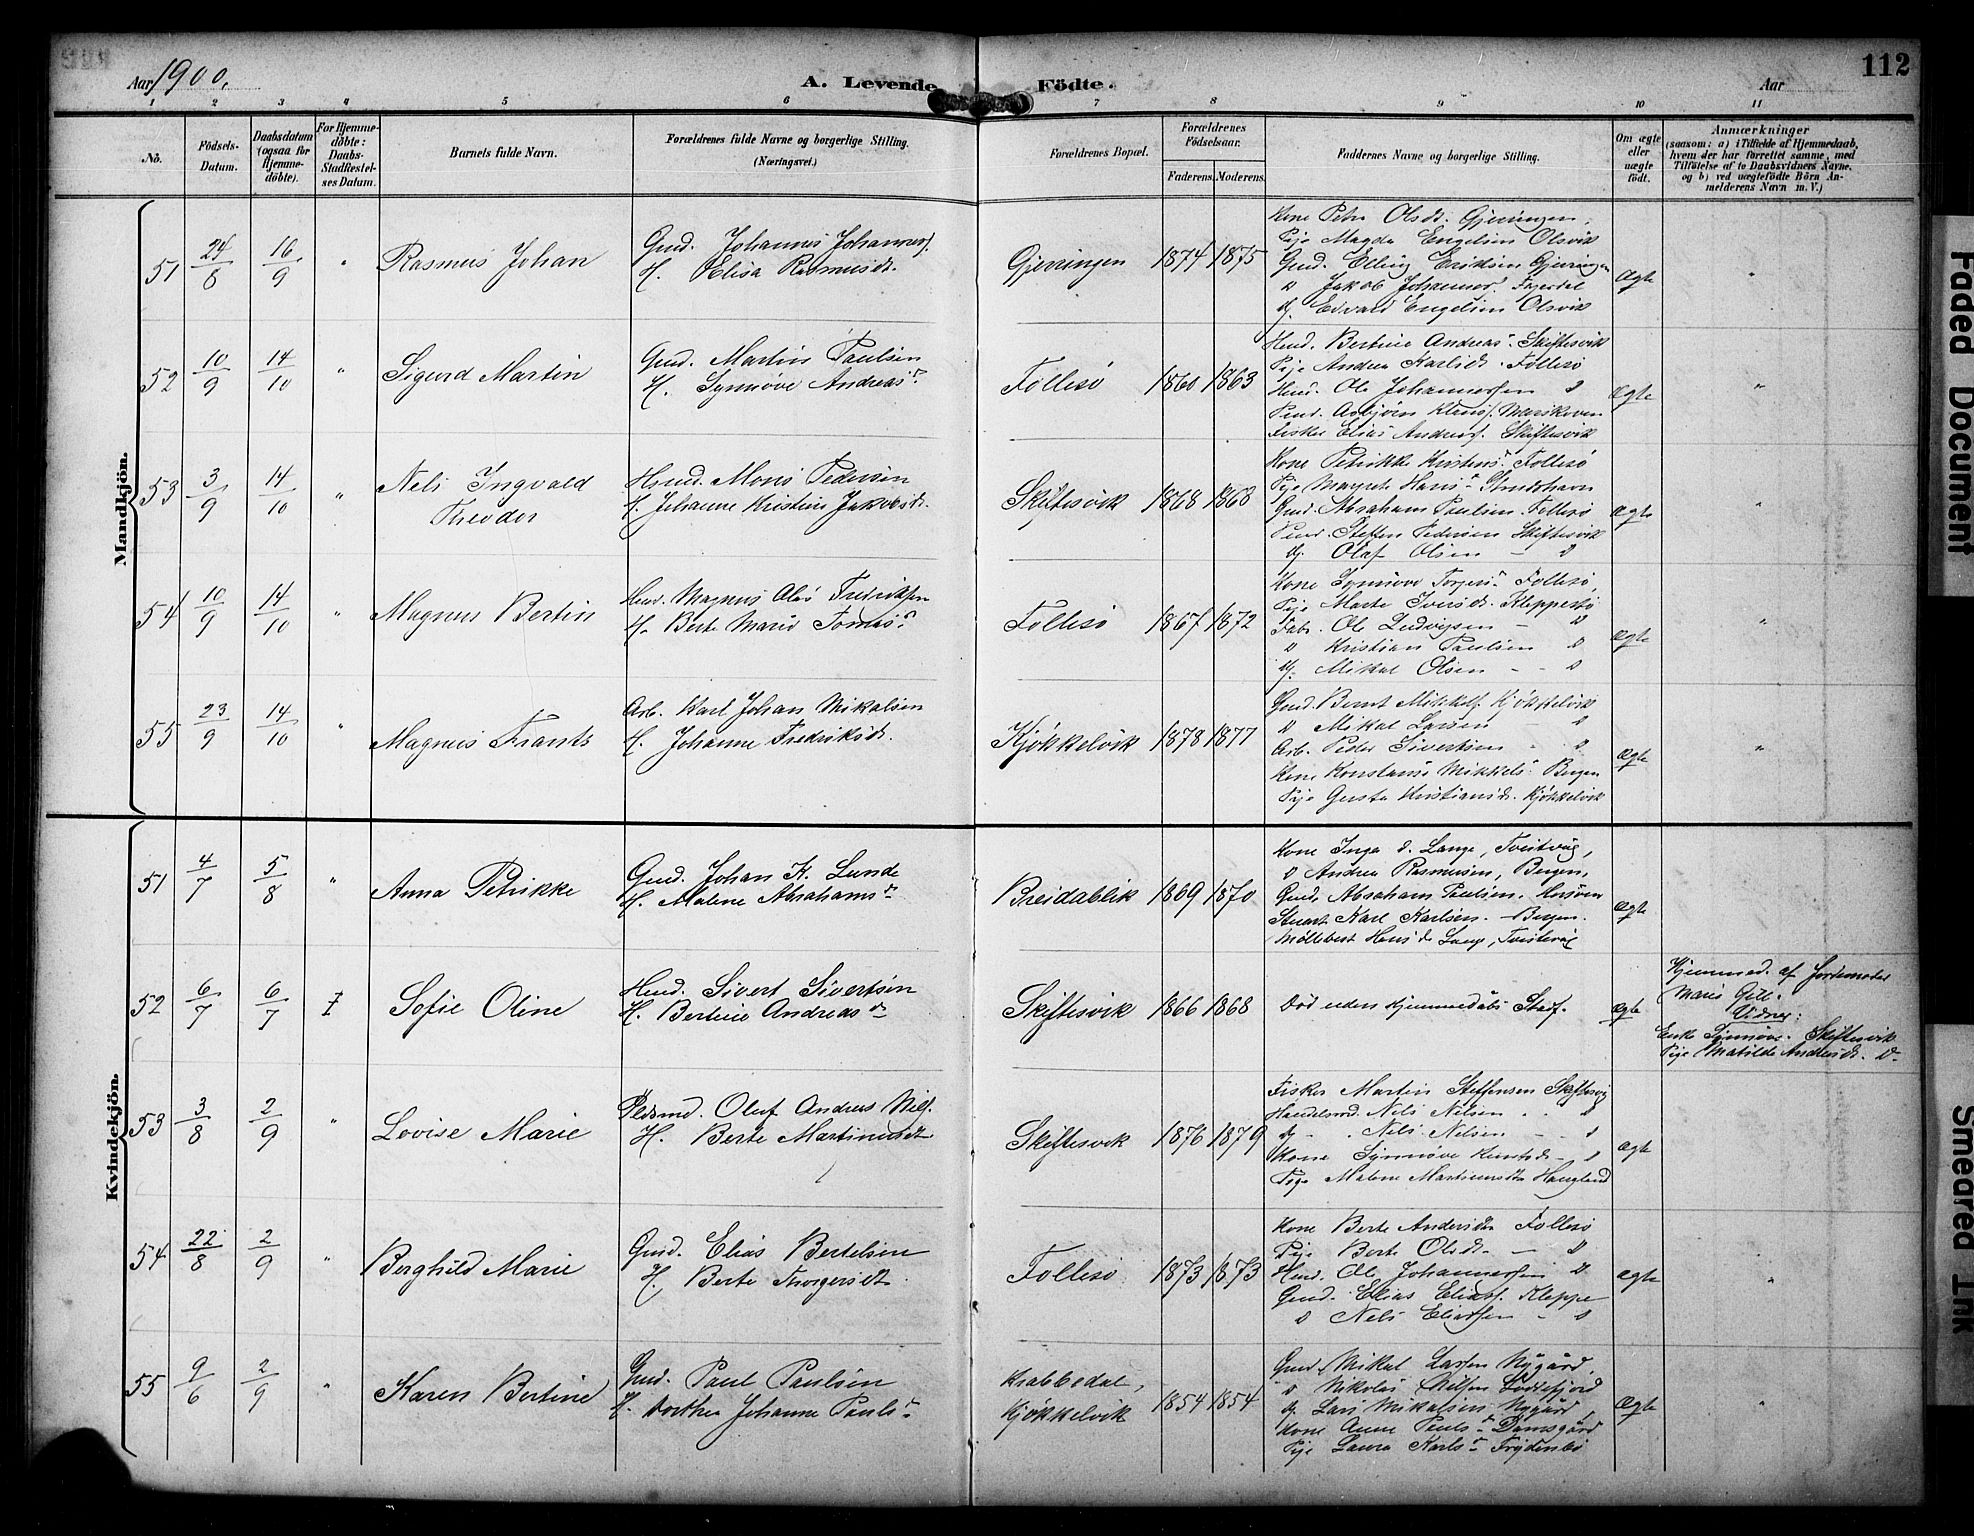 112
Aar 1900.
A. Levende Födte.
Aar
1 2 3 4 5 6 7 8 9 10 11
No.
Födsels-Datum.
Daabsdatum (ogsaa for Hjemme-döbte).
For Hjemme-döbte: Daabs-Stadfæstel-ses Datum.
Barnets fulde Navn.
Forældrenes fulde Navne og borgerlige Stilling. (Næringsvei.)
Forældrenes Bopæl.
Forældrenes Födselsaar.
Faderens. Moderens.
Faddernes Navne og borgerlige Stilling.
Om ægte eller uægte födt.
Anmærkninger
(saasom: a) i Tilfælde af Hjemmedaab, hvem der har forrettet samme, med Tilföielse af to Daabsvidners Navne, og b) ved uægtefödte Börn An-melderens Navn m. V.)
Mandkjön.
51 24/8 16/9 " Rasmus Johan
Gmd. Johannes Johanness.
H. Elisa Rasmusdr.
Gjerringen 1874 1875
Kone Petra Olsdr. Gjerringen
Pige Magda Engelsen Olsvik
Gmd. Elling Eriksen Gjerringen
D Jakob Johanness.
dy. Edvard Engelsen Olsvik
Ægte "
52 10/9 14/10 " Sigurd Martin
Gmd. Martin Paulsen
H. Synnøve Andreasdr.
Follesø 1860 1863
Husd. Bertine Andreas Skiftesvik
Pige Andrea Karlsdr. Follesø
Husd. Ole Johannessen D
Asbjørn
Fisker Elias Andreass. Skiftesvik
Ægte "
53 3/9 14/10 " Nels Ingvald Theodor
Husmd. Mons Pedersen
H. Johanne Kristine Jakobsdr.
Skiftesvik 1868 1868
Kone Petrikke Kristens. Follesø
Pige Margrete Hans
Gmd. Abraham Paulsen. Follesø
Steffen Pedersen Skiftesvik
dy. Olaf Olsen — D
Ægte "
54 10/9 14/10 " Magnus Bertin
Husd. Magnus Olai Fredriksen
H. Berte Marie Tomasdr.
Follesø 1867 1872
Kone Synnøve Torgers. Follesø
Pige Marta Iversdr. Kleppestø
Fabr. Ole Ludvigsen — D
D Kristian Paulsen D
dy. Mikal Olsen — D
Ægte "
55 23/9 14/10 " Magnus Frants
Arb. Karl Johan Mikalsen
H. Johanne Fredriksdr.
Kjøkkelvik 1878 1877
Gmd. Bernt Mikkels. Kjøkkelvik
D Mikal Larsen — D
Arb. Peder Sivertsen — D
Kone Konstanse Mikkels. Bergen
Pige Gusta Kristiansdr. Kjøkkelvik
Ægte "
Kvindekjön.
51 4/7 5/8 " Anna Petrikke
Gmd. Johan K. Lunde
H. Malene Abrahamsdr.
Breidablik 1869 1870
Kone Inga d. Lange,
D Andrea Rasmusen, Bergen,
Gmd. Abraham Paulsen.
Stuert Karl Karlsen. — Bergen.
Ægte
52 6/7 6/7 Sofie Oline
Husd. Sivert Sivertsen
H. Bertine Andreasdr.
Skiftesvik 1866 1868
Død uden Hjemmedåbs Stadf.
Ægte
Hjemmed. af Jordemoder
Marie Gill.
Vidner:
Enke Synnøve. Skiftesvik
Pige Matilde Andreasdr. D
53 3/8 2/9 " Lovise Marie
Oluf Andreas Nils.
H. Berte Martinusdt
Skiftesvik 1876 1879
Fisker Martin Steffensen Skiftesvig
Nels Nelsen D
dy. Nels Nelsen D
Kone Synnøve Knutsdr. D
Pige Malene Martinusdt Haugland
Ægte
54 22/8 2/9 " Berghild Marie
Gmd. Elias Bertelsen
H. Berte Thorgersdt.
Follesø 1873 1873
Kone Berte Andersdtr Follesø
Pige Berte Olsdr. — D
Husd. Ole Johannessen D
Gmd. Elias Eliass. Kleppe
D Nels Eliassen D
Ægte "
55 9/6 2/9 " Karen Bertine
Gmd. Paul Paulsen
H. Dorthea Johanne Paulsdr.
Krabbedal, Kjøkkelvik 1854 1854
Gmd. Mikal Larsen Nygård,
D Nikolai Nilsen Loddefjord
dy. Lars Mikalsen Nygård,
Kone Anne Paulsdr. Damsgård
Pige Laura Karlsdr. Frydenbø
Ægte "
Faded Document
Smeared Ink